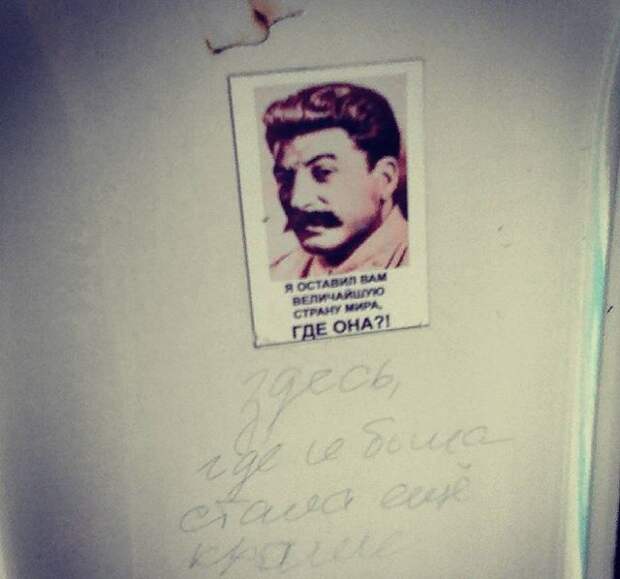 Я ОСТАВИЛ ВАМ
ВЕЛИЧАЙШУЮ
СТРАНУ МИРА,
ГДЕ ОНА?!
здесь,
где и была
стала ещё